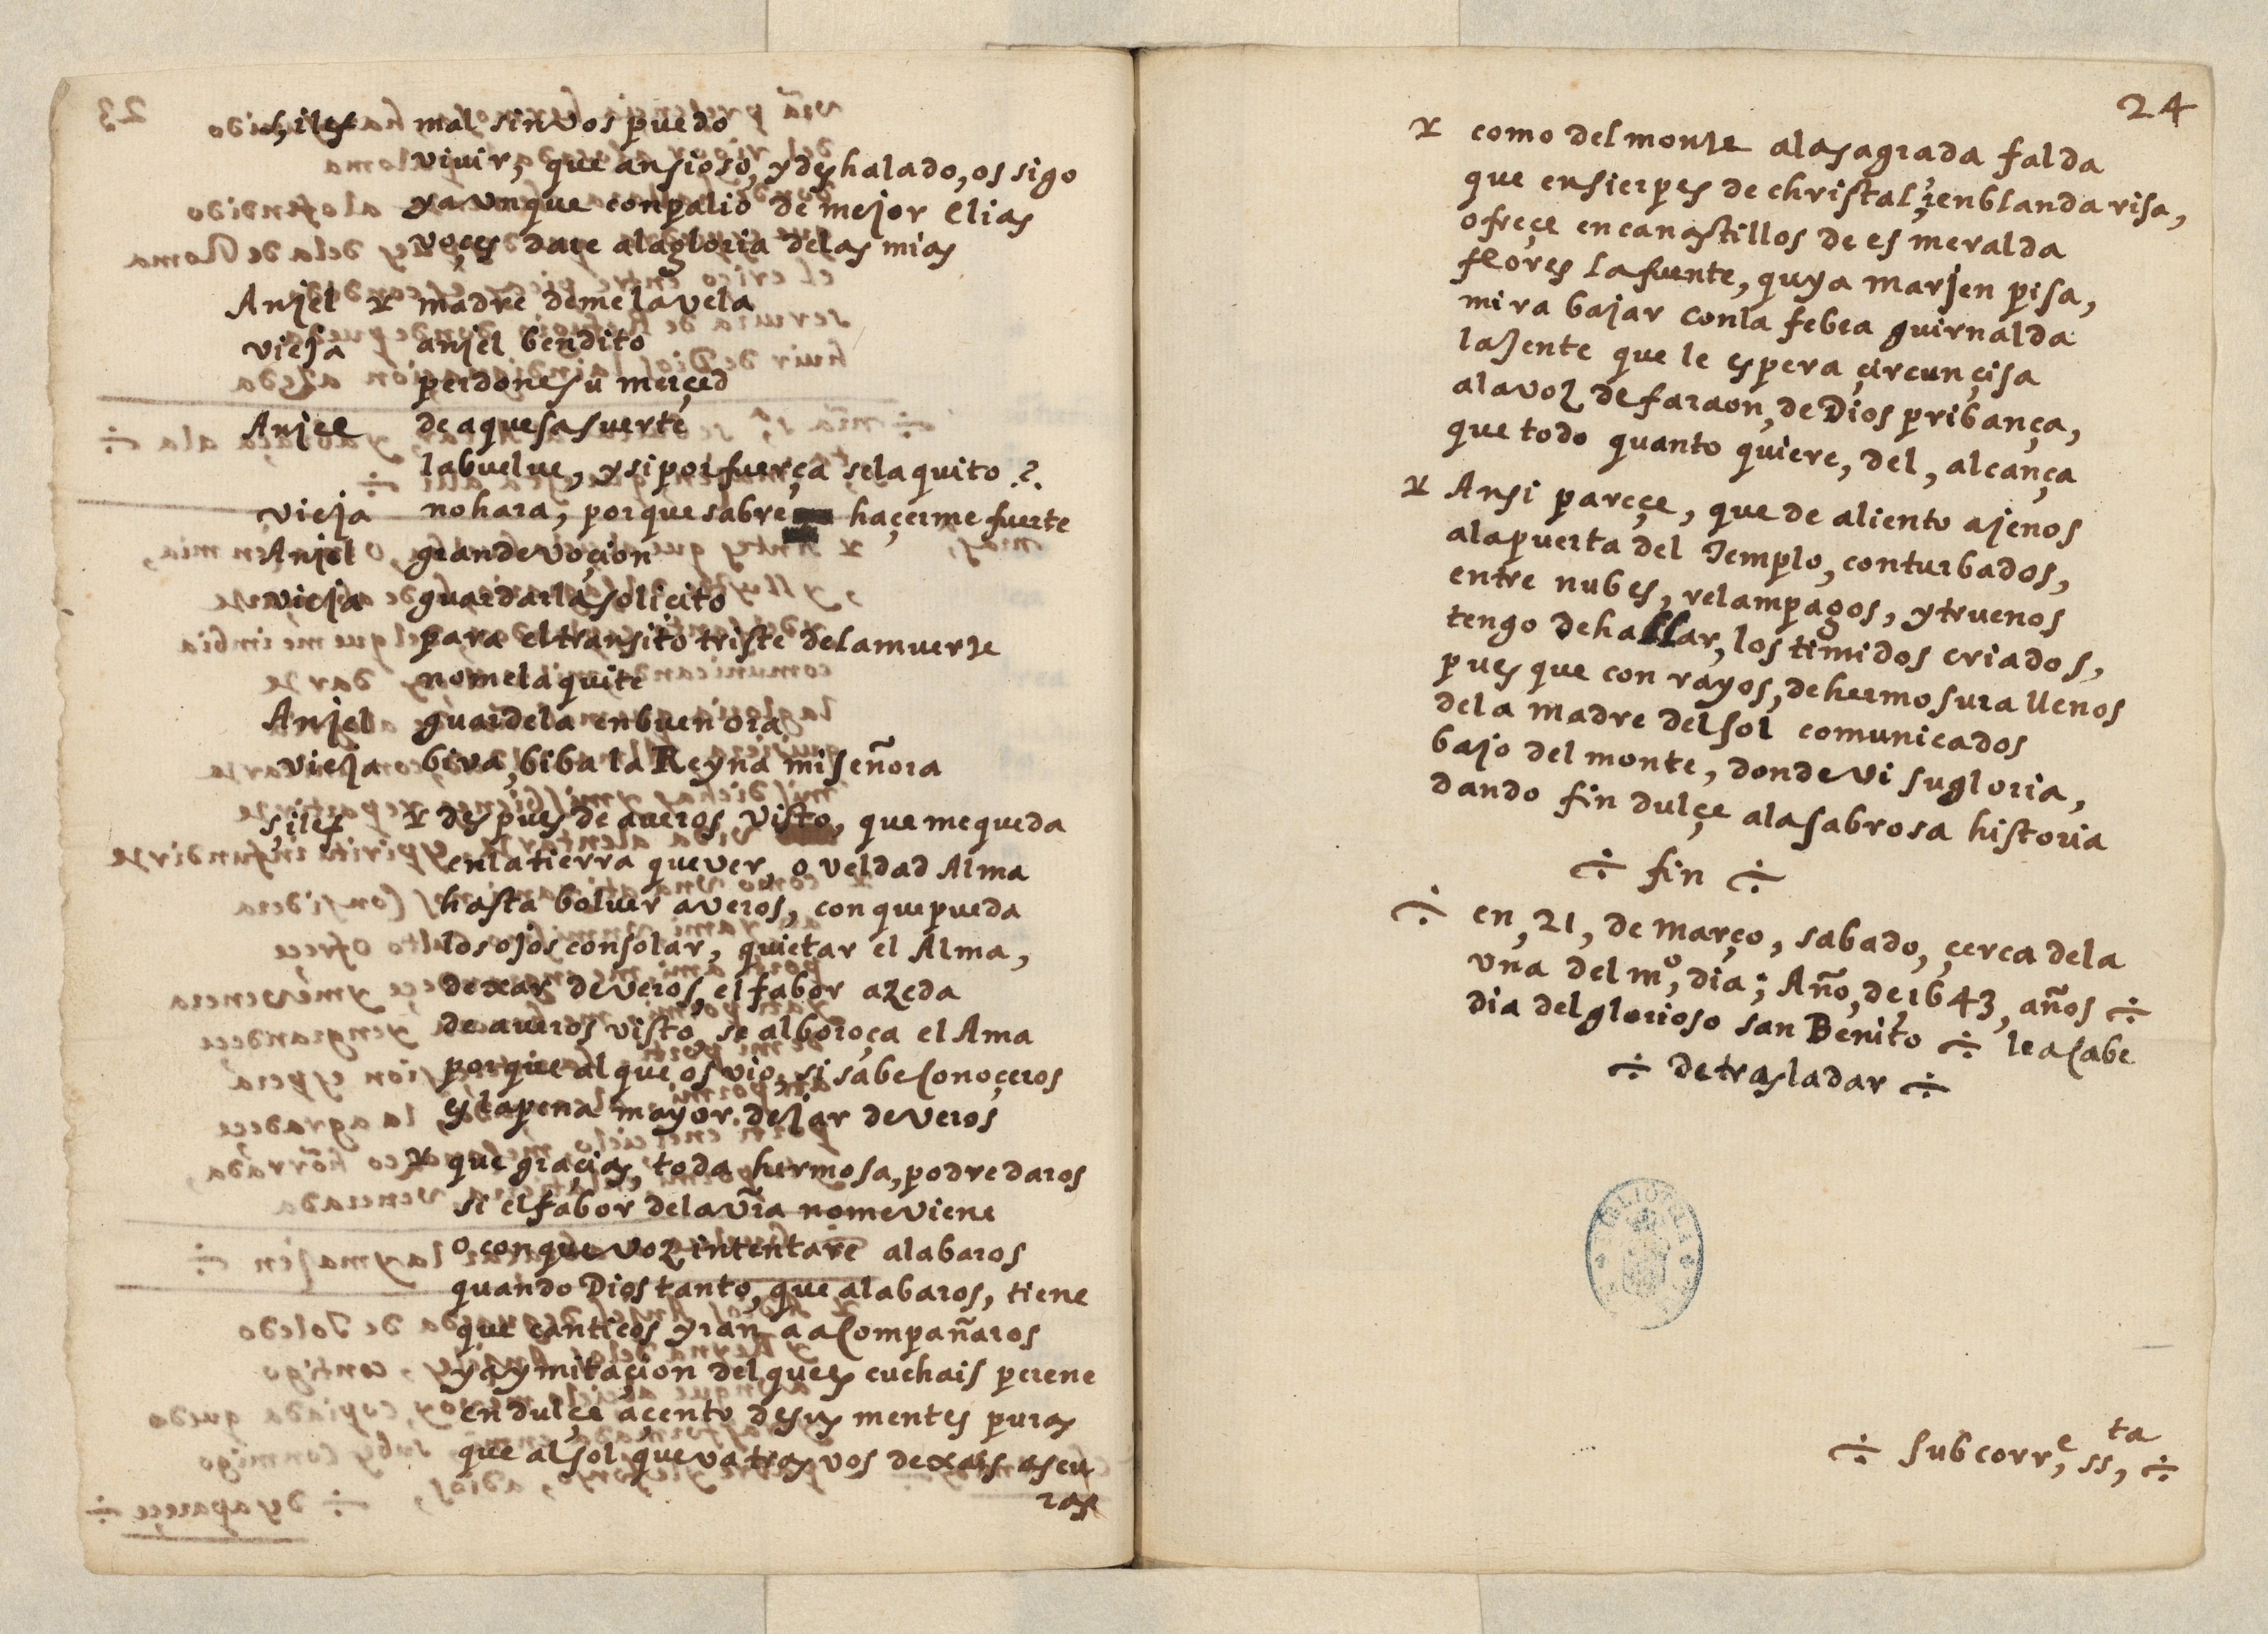 s, ilef mal sin vos puedo
vivir, que ansioso, y deshalado, os sigo
ya unque con palio de mejor Elias
voçes dare ala gloria de las mias
Anjel madre deme la vela
vieja anjel bendito
perdone su merçed
Anjel de aquesa suerte
la buelue, y si por fuerça se la quito ?.
vieja no hara, porque sabre haçerme fuerte
Anjel gran devoçion
vieja guardarla soliçito
para el transito triste de la muerte
no me la quite
Anjel guardela en buen ora
vieja biva, biba la Reyna mi señora
s, ilef despues de averos visto, que me queda
en la tierra que ver, o veldad Alma
hasta bolver averos, con que pueda
los ojos consolar, quietar el Alma,
dexar de veros, el fabor azeda
de averos visto, se alboroça el Ama
porque al que os vio, si sabe conoçeros
es la pena mayor. dejar de veros
que graçias, toda hermosa, podre daros
si el fabor de la vr̃a no me viene
o con que voz intentare alabaros
quando Dios tanto, que alabaros, tiene
que canticos yran a acompañaros
y a ymitaçion del que escuchais perene
en dulçe açento de sus mentes puras
que al sol que va tras vos dexais ascu
ras
24
como del monte ala sagrada falda
que en sierpes de christal, en blanda risa,
ofreçe en canastillos de esmeralda
flores la fuente, quya marjen pisa,
mira bajar con la febea guirnalda
la jente que le espera çircunçisa
ala voz de faraon, de Dios pribança,
que todo quanto quiere, del, alcança
Ansi pareçe, que de aliento ajenos
ala puerta del Templo, conturbados,
entre nubes, relampagos, y truenos
tengo de hallar, los timidos criados,
pues que con rayos, de hermosura llenos
dela madre del sol comunicados
bajo del monte, donde vi su gloria,
dando fin dulçe ala sabrosa historia
÷ fin ÷
÷ en, 21, de março, sabado, çerca dela
vna del mº, dia; Año, de, 1643, años ÷
dia del glorioso san Benito ÷ le acabe
÷ de trasladar ÷
÷ sub corr,e ss,ta ÷